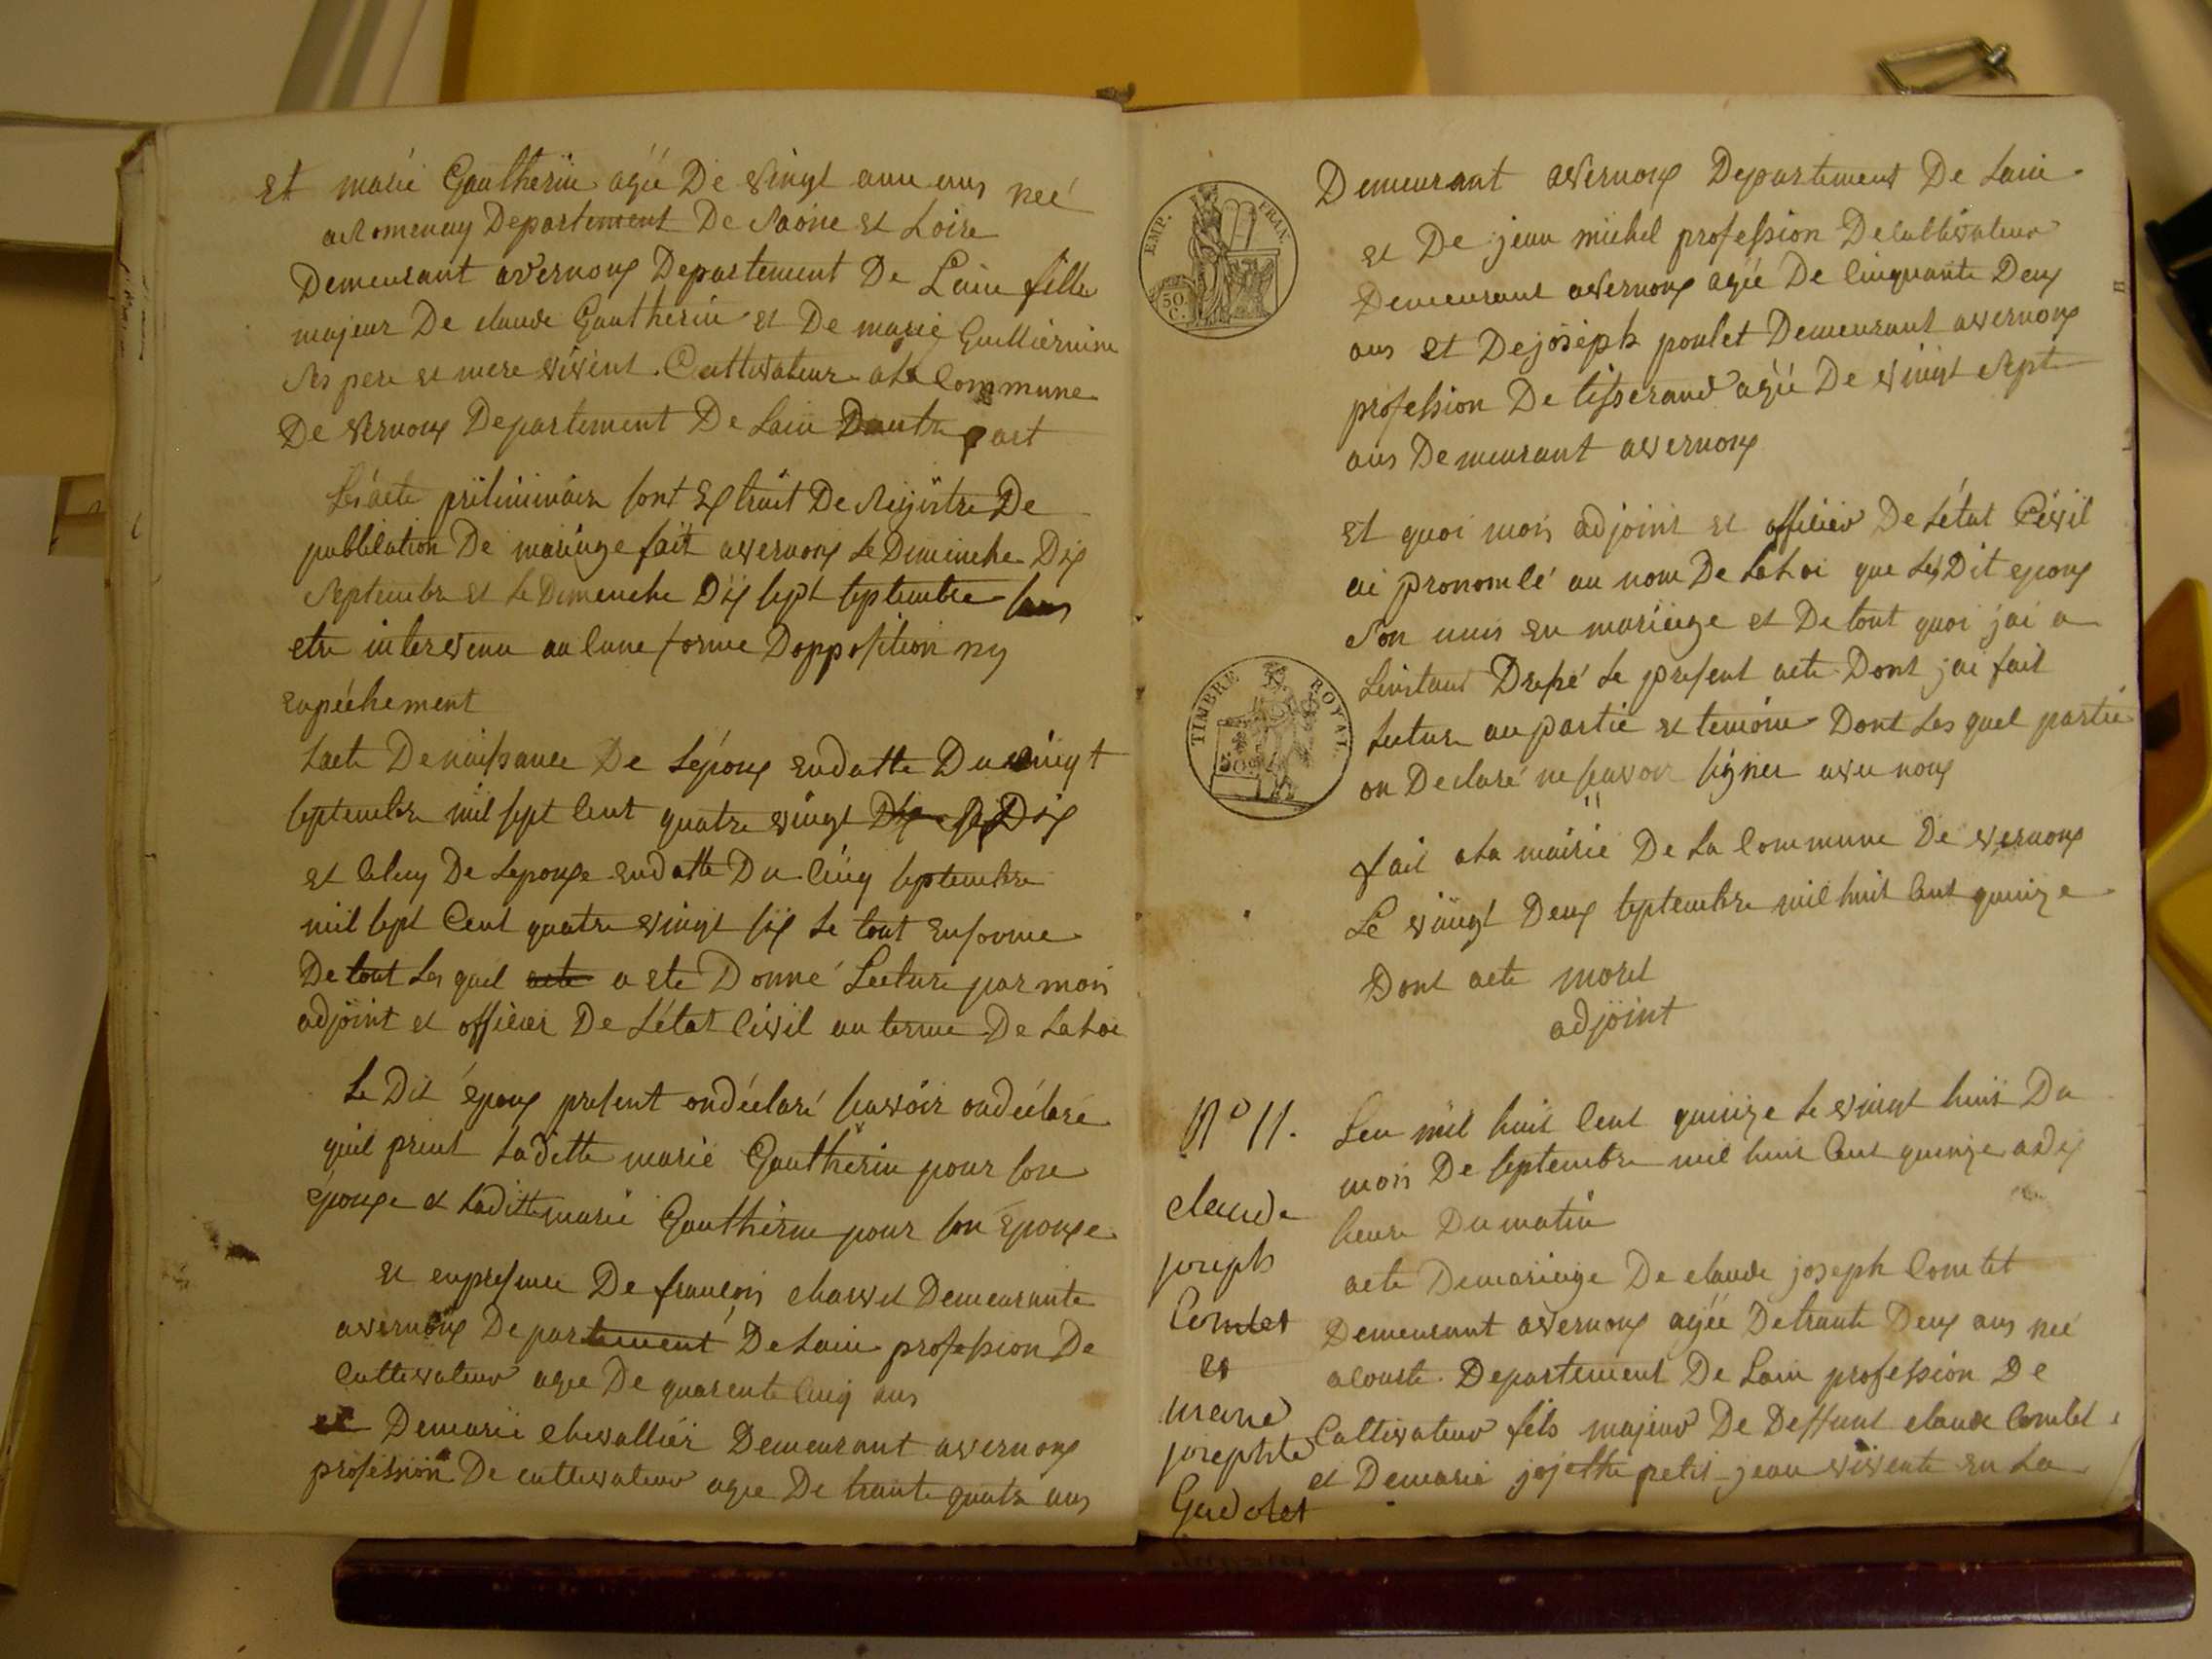 et marié Gautherin agéé De vingt anu ans neé
a Romenay Departement De Saóne et Loire
Demeurant avernoux Departement De Lain fille
majeur De claude Gautherin et De marié Guilliermin
Ses pere et mere vivent Cultivateur ala Commune
De vernoux Departement De Lain Dautre part
Les acte préliminaire sont Extrait De Régistre De
publication De mariage fait avernoux Le Diminche Dix
Septembre et Le Dimenche Dix sept septembre sans
etre intervenu aucune forme Dopposition ny
enpéchement
Lacte De naissance De Lépoux endatte Du vingt
septembre mil sept cent quatre vingt Dix
et celuy De Lepouse endatte Du cinq septembre
mil sept Cent quatre vingt six Le tout enforme
De tout Les quel acte a ete Donné Lecture par moi
adjoint et officier De Létat Civil au terme De La Loi
Le Dit époux present ondéclaré savoir ondéclaré
quil prent Laditte marié Gautherin pour son
épouse et Laditte marié Gautherin pour son Epouse
et enpresence De francois charvet Demeurante
avernoux Departement De Lain profession De
Cultivateur agee De quarente cinq ans
et Demarie chevalliér Demeurant avernoux
profession De cultivateur agee De trante quatre ans
EMP. FRAN.
50 C.
Demeurant avernoux Departement De Lain
et De jean michel profession De cultivateur
Demeurant avernoux agéé De Cinquante Deux
ans et De joseph poulet Demeurant avernoux
profession De tisserand agéé De vingt Sept
ans Demeurant avernoux
et quoi moi adjoint et officiér De Létat Civil
ai pronomcé au nom De La Loi que Les Dit epoux
Son unis en mariage et De tout quoi jai a
Linstant Dressé Le present acte Dont jai fait
TIMBRE ROYAL
50 c
Lecture au partie et temoin Dont Les quel partie
on Declaré ne savoir signer avec nous
fait ala mairié De La Commune De vernoux
Le vingt Deux septembre mil huit cent quinze
Dont acte morel
adjoint
N° 11.
claude
joseph
Comtet
et
marie
josephte
Gadolet
Lan mil huit Cent quinze Le vingt huit Du
mois De septembre mil huit Cent quinze a Dix
heure Du matin
acte Demariage De claude joseph Comtet
Demeurant avernoux agéé De trante Deux ans neé
a Couste Departement De Lain profession De
Cultivateur fils majeur De Deffunt claude Comtet
et Demarie jojethe petit jean vivente en La